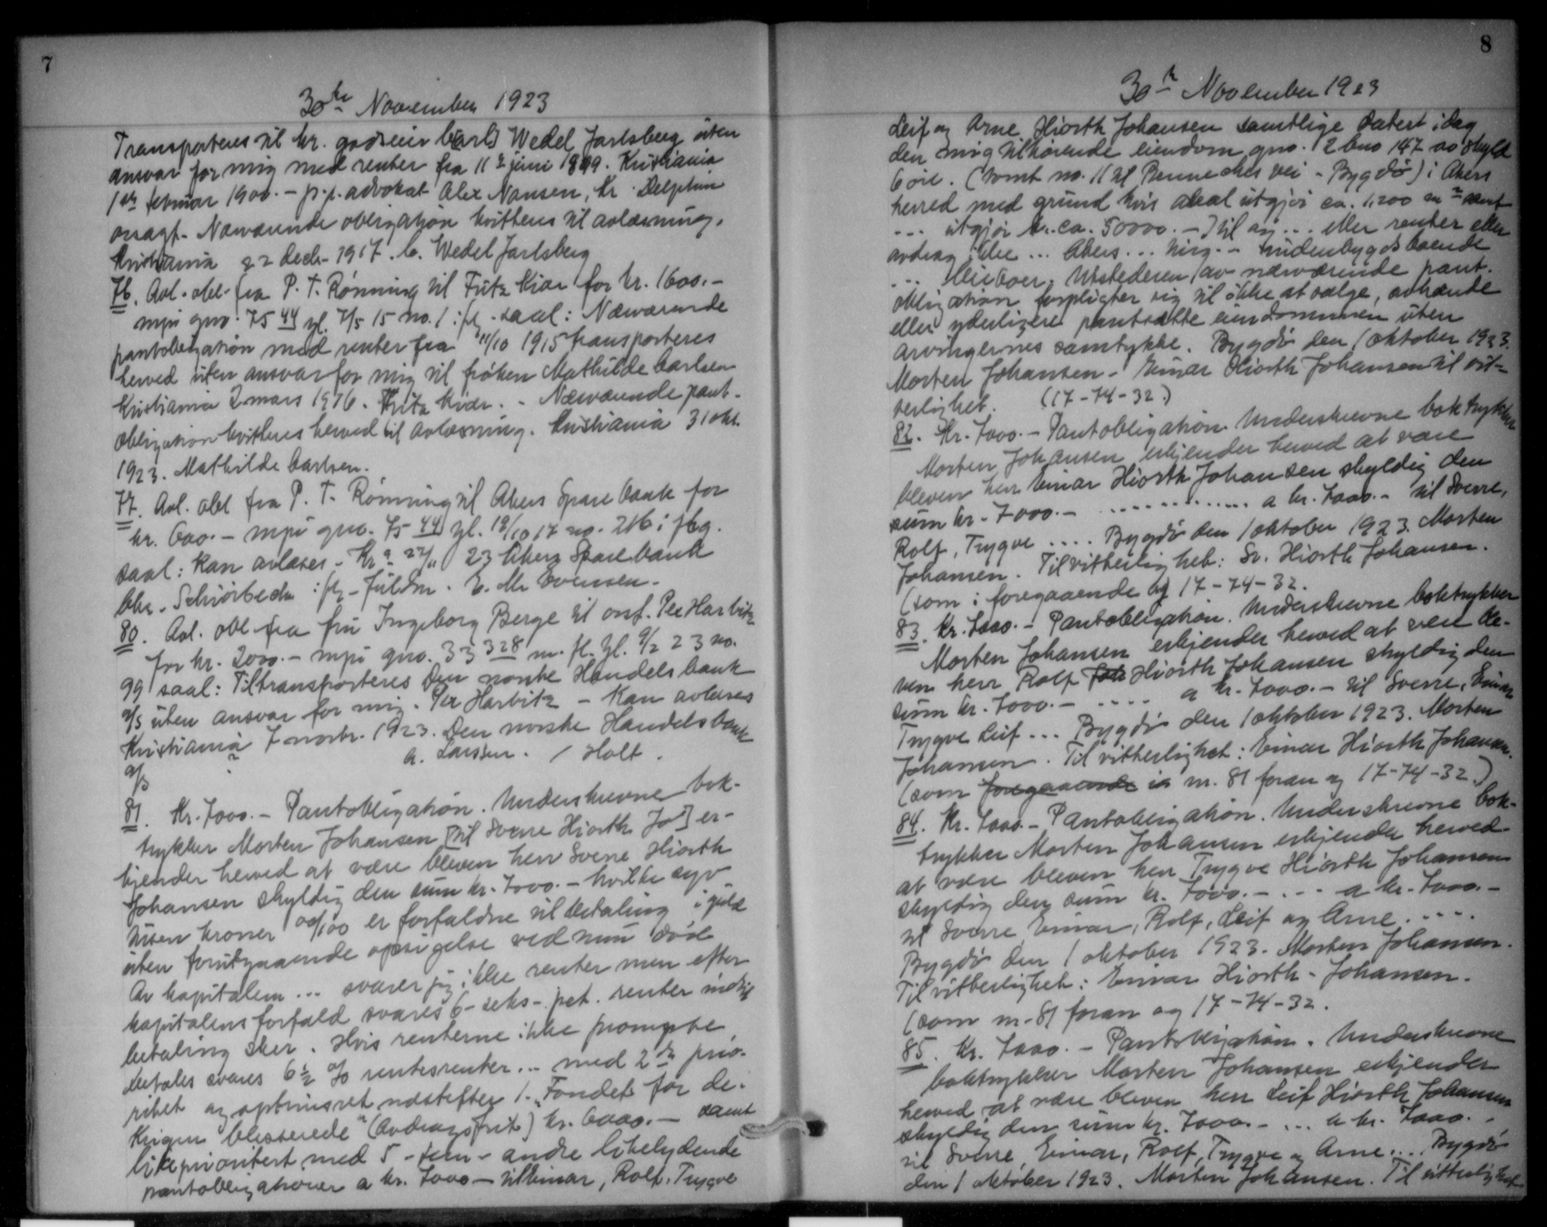 7
30te November 1923
Transporteres til hr. godseier Carl Wedel Jarlsberg uten
ansvar for mig med renter fra 11te juni 1899. Kristiania
1ste februar 1900. - p.p. advokat Alex Nansen, Kr. Delphin
onsagt. Nærværende obligation kvitteres til avlæsning.
Kristiania 22 decbr 1917. C. Wedel Jarlsberg
76. Avl. obl. fra P. T. Rønning til Fritz Kiær for kr. 1600.-
mpi gno. 75 44 gl. 7/5 15 no. 1 : fl. saal: Nærværende
pantobligation med renter fra 11/10 1915 transporteres
herved uten ansvar for mig til frøken Mathilde Carlsen
Kristiania 2 mars 1916. Fritz Kiær. - Nærværende pant-
obligation kvitteres herved til avlæsning. Kristiania 31 okt.
1923. Mathilde Carlsen.
77. Avl. obl fra P. T. Rønning til Akers Sparebank for
kr. 600.- mpi gno. 75 44 gl. 18/10 17 no. 216 i fbg.
saal: Kan avlæses - Kr.a 27/11 23 Akers Sparebank
Chr. Schiørbeck : fl. Fuldm. E. M. Evensen.
80. Avl. obl fra fru Ingeborg Berge til onf. Per Harbitz
for kr. 2000.- mpi gno. 33 328 m. fl. gl. 9/2 23 no.
99 saal: Tiltransporteres Den norske Handelsbank
a/s uten ansvar for mig. Per Harbitz - Kan avlæses
Kristiania 7 novbr. 1923. Den norske Handelsbank
a/s a. Larssen. / Holt.
81. Kr. 7000.- Pantobligation. Underskrevne bok-
trykker Morten Johansen [til Sverre Hiorth Jo] er-
kjender herved at være bleven herr Sverre Hiorth
Johansen skyldig den sum kr. 7000.- hvilke syv
tusen kroner 00/100 er forfaldne til betaling i guld
uten forutgaaende opsigelse ved min død
Av kapitalen ... svarer jeg ikke renter men efter
kapitalens forfald svares 6 - seks - pct. renter indtil
betaling sker. Hvis renterne ikke prompte
betales svares 6 1/2 % rentesrenter ... med 2den prio-
ritet og oprinsret næstefter 1. "Fondet for de i
Krigen blesserede" (Avdragsfrit) kr. 6000.- samt
likeprioritert med 5 - fem - andre likelydende
pantobligationer a kr. 7000.- til Einar, Rolf, Trygve
8
30te November 1923
Leif og Arne Hiorth Johansen samtlige datert idag
den mig tilhørende eiendom gno. 2 bno 147 av skyld
6 øre. (tomt no. 11 til Bennechesvei - Bygdø) i Akers
herred med grund hvis areal utgjør ca. 1,200 m2 samt
... utgjør kr. ca. 50000.-) til og ... eller renter eller
avdrag ikke ... Akers ... ting. - Utenbygdsboende
... Utstederen av nærværende pant-
obligation forpligter sig til ikke at sælge, avhænde
eller yderligere pantsætte eiendommen uten
arvingernes samtykke. Bygdø den 1 oktober 1923.
Morten Johansen - Einar Hiorth Johansen til vit-
terlighet. (17-74-32)
82. Kr. 7000.- Pantobligation. Underskrevne boktrykker
Morten Johansen erkjender herved at være
bleven herr Einar Hiorth Johansen skyldig den
sum kr. 7000.- ............ a kr. 7000.- til Sverre,
Rolf, Trygve .... Bygdø den 1 oktober 1923. Morten
Johansen. Til vitterlighet: Sv. Hiorth Johansen.
(som i foregaaende og 17-74-32.
83. Kr. 7000.- Pantobligation. Underskrevne boktrykker
Morten Johansen erkjender herved at være ble-
ven herr Rolf Joh Hiorth Johansen skyldig den
sum kr. 7000.- .... a kr. 7000.- til Sverre, Einar
Trygve Leif ... Bygdø den 1 oktober 1923. Morten
Johansen. Til vitterlighet: Einar Hiorth Johansen.
(som foregaaende i nr. 81 foran og 17-74-32.)
84. Kr. 7000.- Pantobligation. Underskrevne bok-
trykker Morten Johansen erkjender herved
at være bleven herr Trygve Hiorth Johansen
skyldig den sum kr. 7000.- ... a kr. 7000.-
til Sverre Einar, Rolf, Leif og Arne .....
Bygdø den 1 oktober 1923. Morten Johansen.
Til vitterlighet: Einar Hiorth-Johansen.
(som nr. 81 foran og 17-74-32.
85. Kr. 7000.- Pantobligation. Underskrevne
boktrykker Morten Johansen erkjender
herved at være bleven herr Leif Hiorth Johansen
skyldig den sum kr. 7000.- ... a kr. 7000.-
til Sverre Einar, Rolf, Trygve og Arne .... Bygdø
den 1 oktober 1923. Morten Johansen. Til vitterlighet